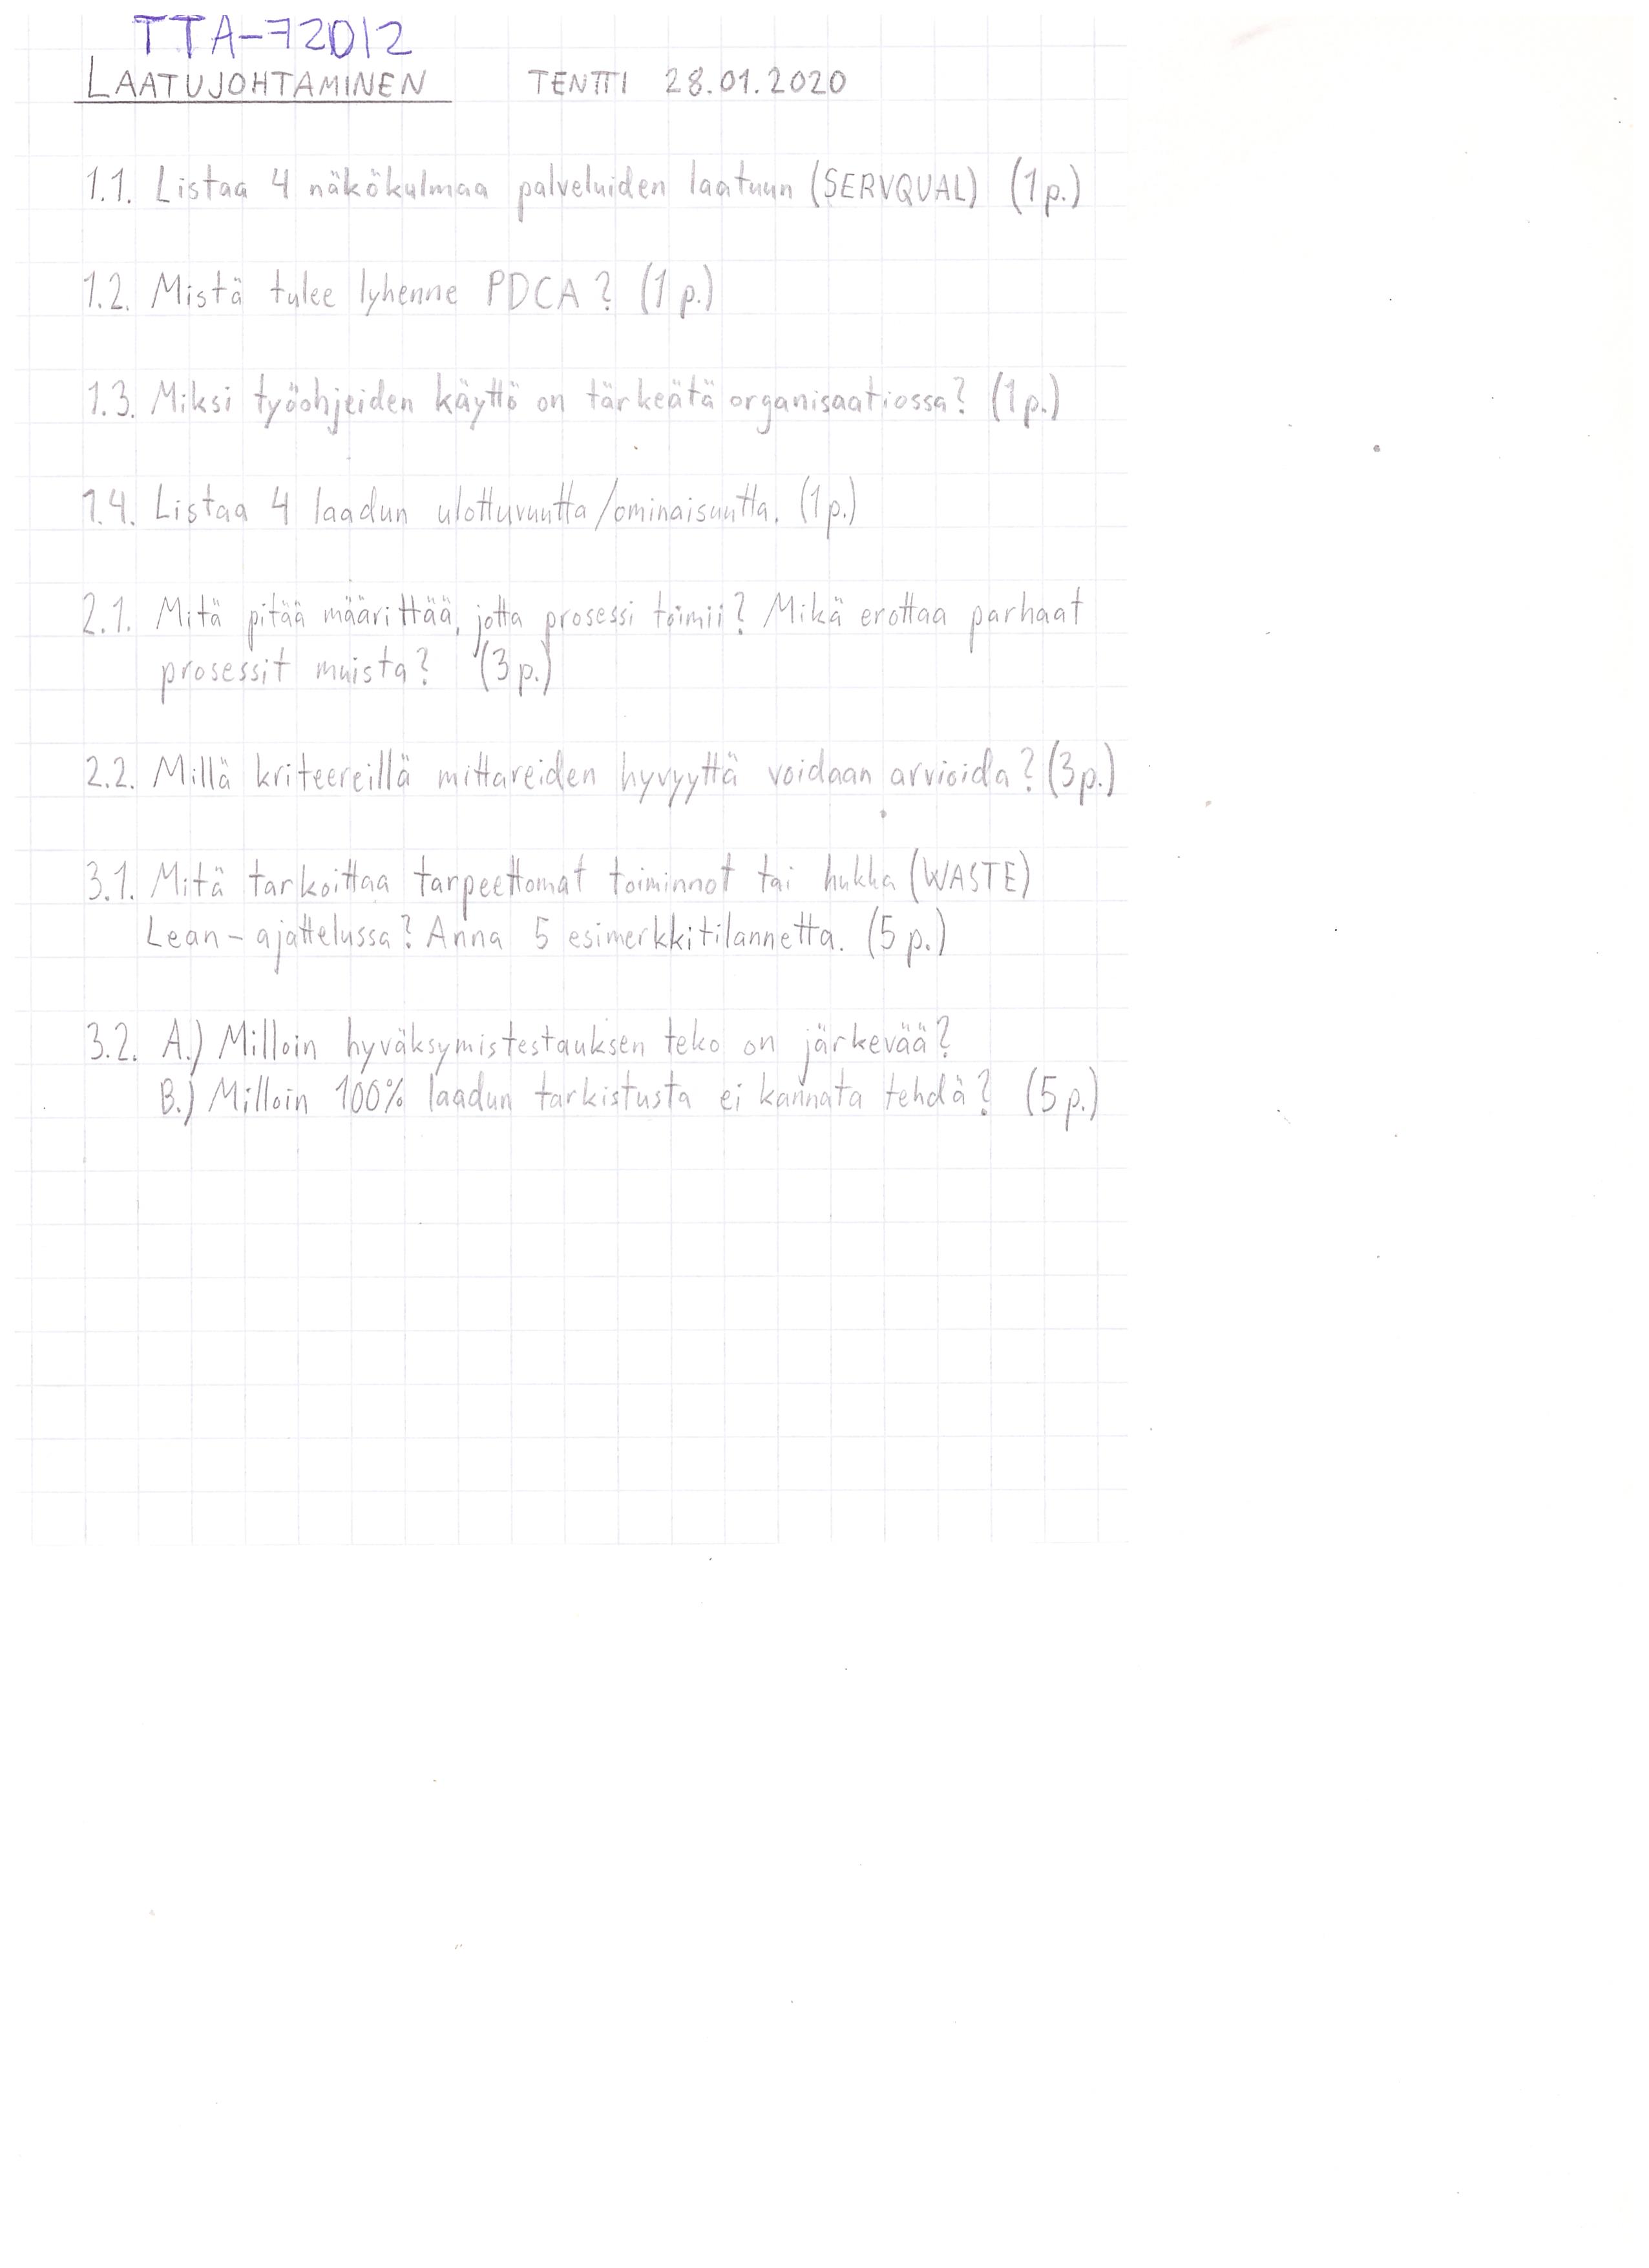 TTA-72012
LAATUJOHTAMINEN TENTTI 28.01.2020
1.1. Listaa 4 näkökulmaa palveluiden laatuun (SERVQUAL) (1 p.)
1.2. Mistä tulee lyhenne PDCA? (1 p.)
1.3. Miksi työohjeiden käyttö on tärkeätä organisaatiossa? (1 p.)
1.4. Listaa 4 laadun ulottuvuutta/ominaisuutta. (1 p.)
2.1. Mitä pitää määrittää, jotta prosessi toimii? Mikä erottaa parhaat
prosessit muista? (3 p.)
2.2. Millä kriteereillä mittareiden hyvyyttä voidaan arvioida? (3 p.)
3.1. Mitä tarkoittaa tarpeettomat toiminnot tai hukka (WASTE)
Lean-ajattelussa? Anna 5 esimerkkitilannetta. (5 p.)
3.2. A.) Milloin hyväksymistestauksen teko on järkevää?
B.) Milloin 100% laadun tarkistusta ei kannata tehdä? (5 p.)